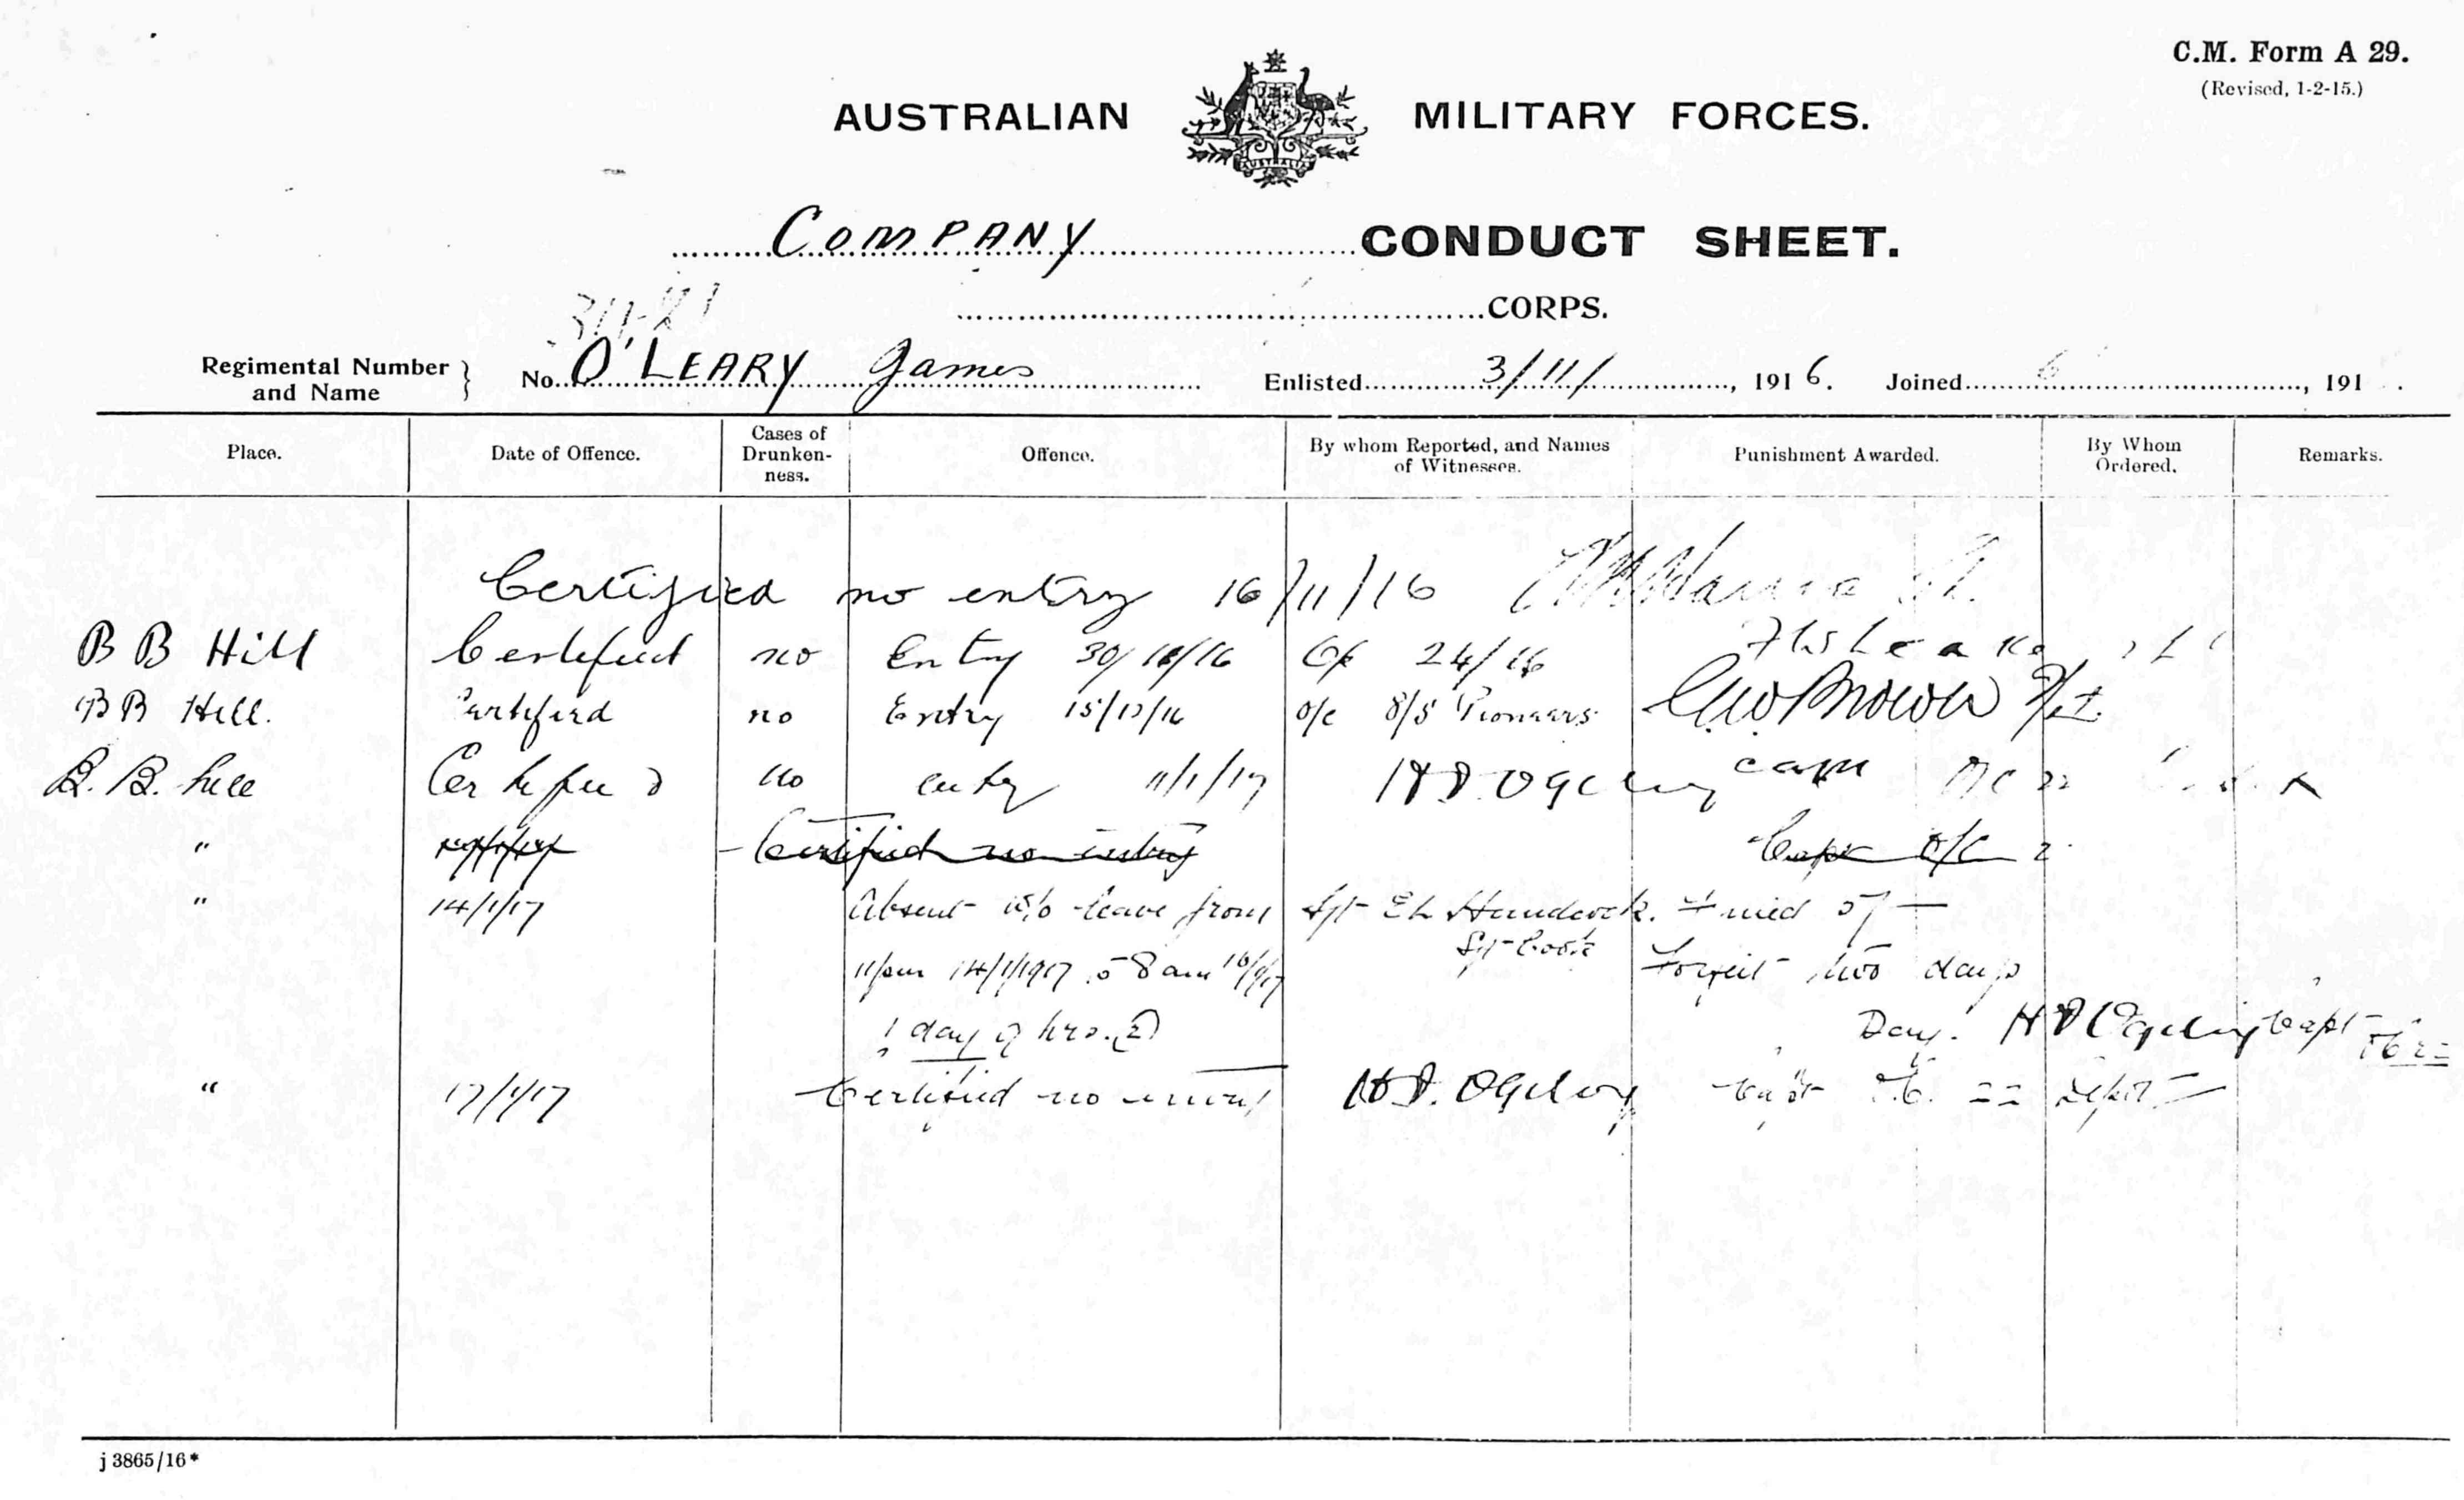 C.M. Form A 29.
(Revised, 1-2-15.)
AUSTRALIAN MILITARY FORCES.
AUSTRALIA
COMPANY CONDUCT SHEET.
CORPS.
Regimental Number and Name } No. O'LEARY James Enlisted 3/11/, 1916. Joined , 191 .
Place. Date of Offence. Cases of Drunken-ness. Offence. By whom Reported, and Names of Witnesses. Punishment Awarded. By Whom Ordered. Remarks.
Certified no entry 16/11/16
B B Hill Certified no Entry 30/ /16 24/16
B B Hill. Certified no Entry 15/12/16 o/c 8/5 Pioneers Geo Brown
B. B. hill Certified no entry 11/1/17 H.D. Ogilvy capt
" Certified no entry Capt O/C 2
" 14/1/17 Absent w/o leave from Sgt
Sgt Cook
11pm 14/1/1917 to 8 am 16/1/17 Forfeit two days
1 day 9 hrs. (2) Pay. H D Ogilvy Capt
" 17/1/17 Certified no entry H.D. Ogilvy Capt O.C. 22 Depot
j 3865/16*